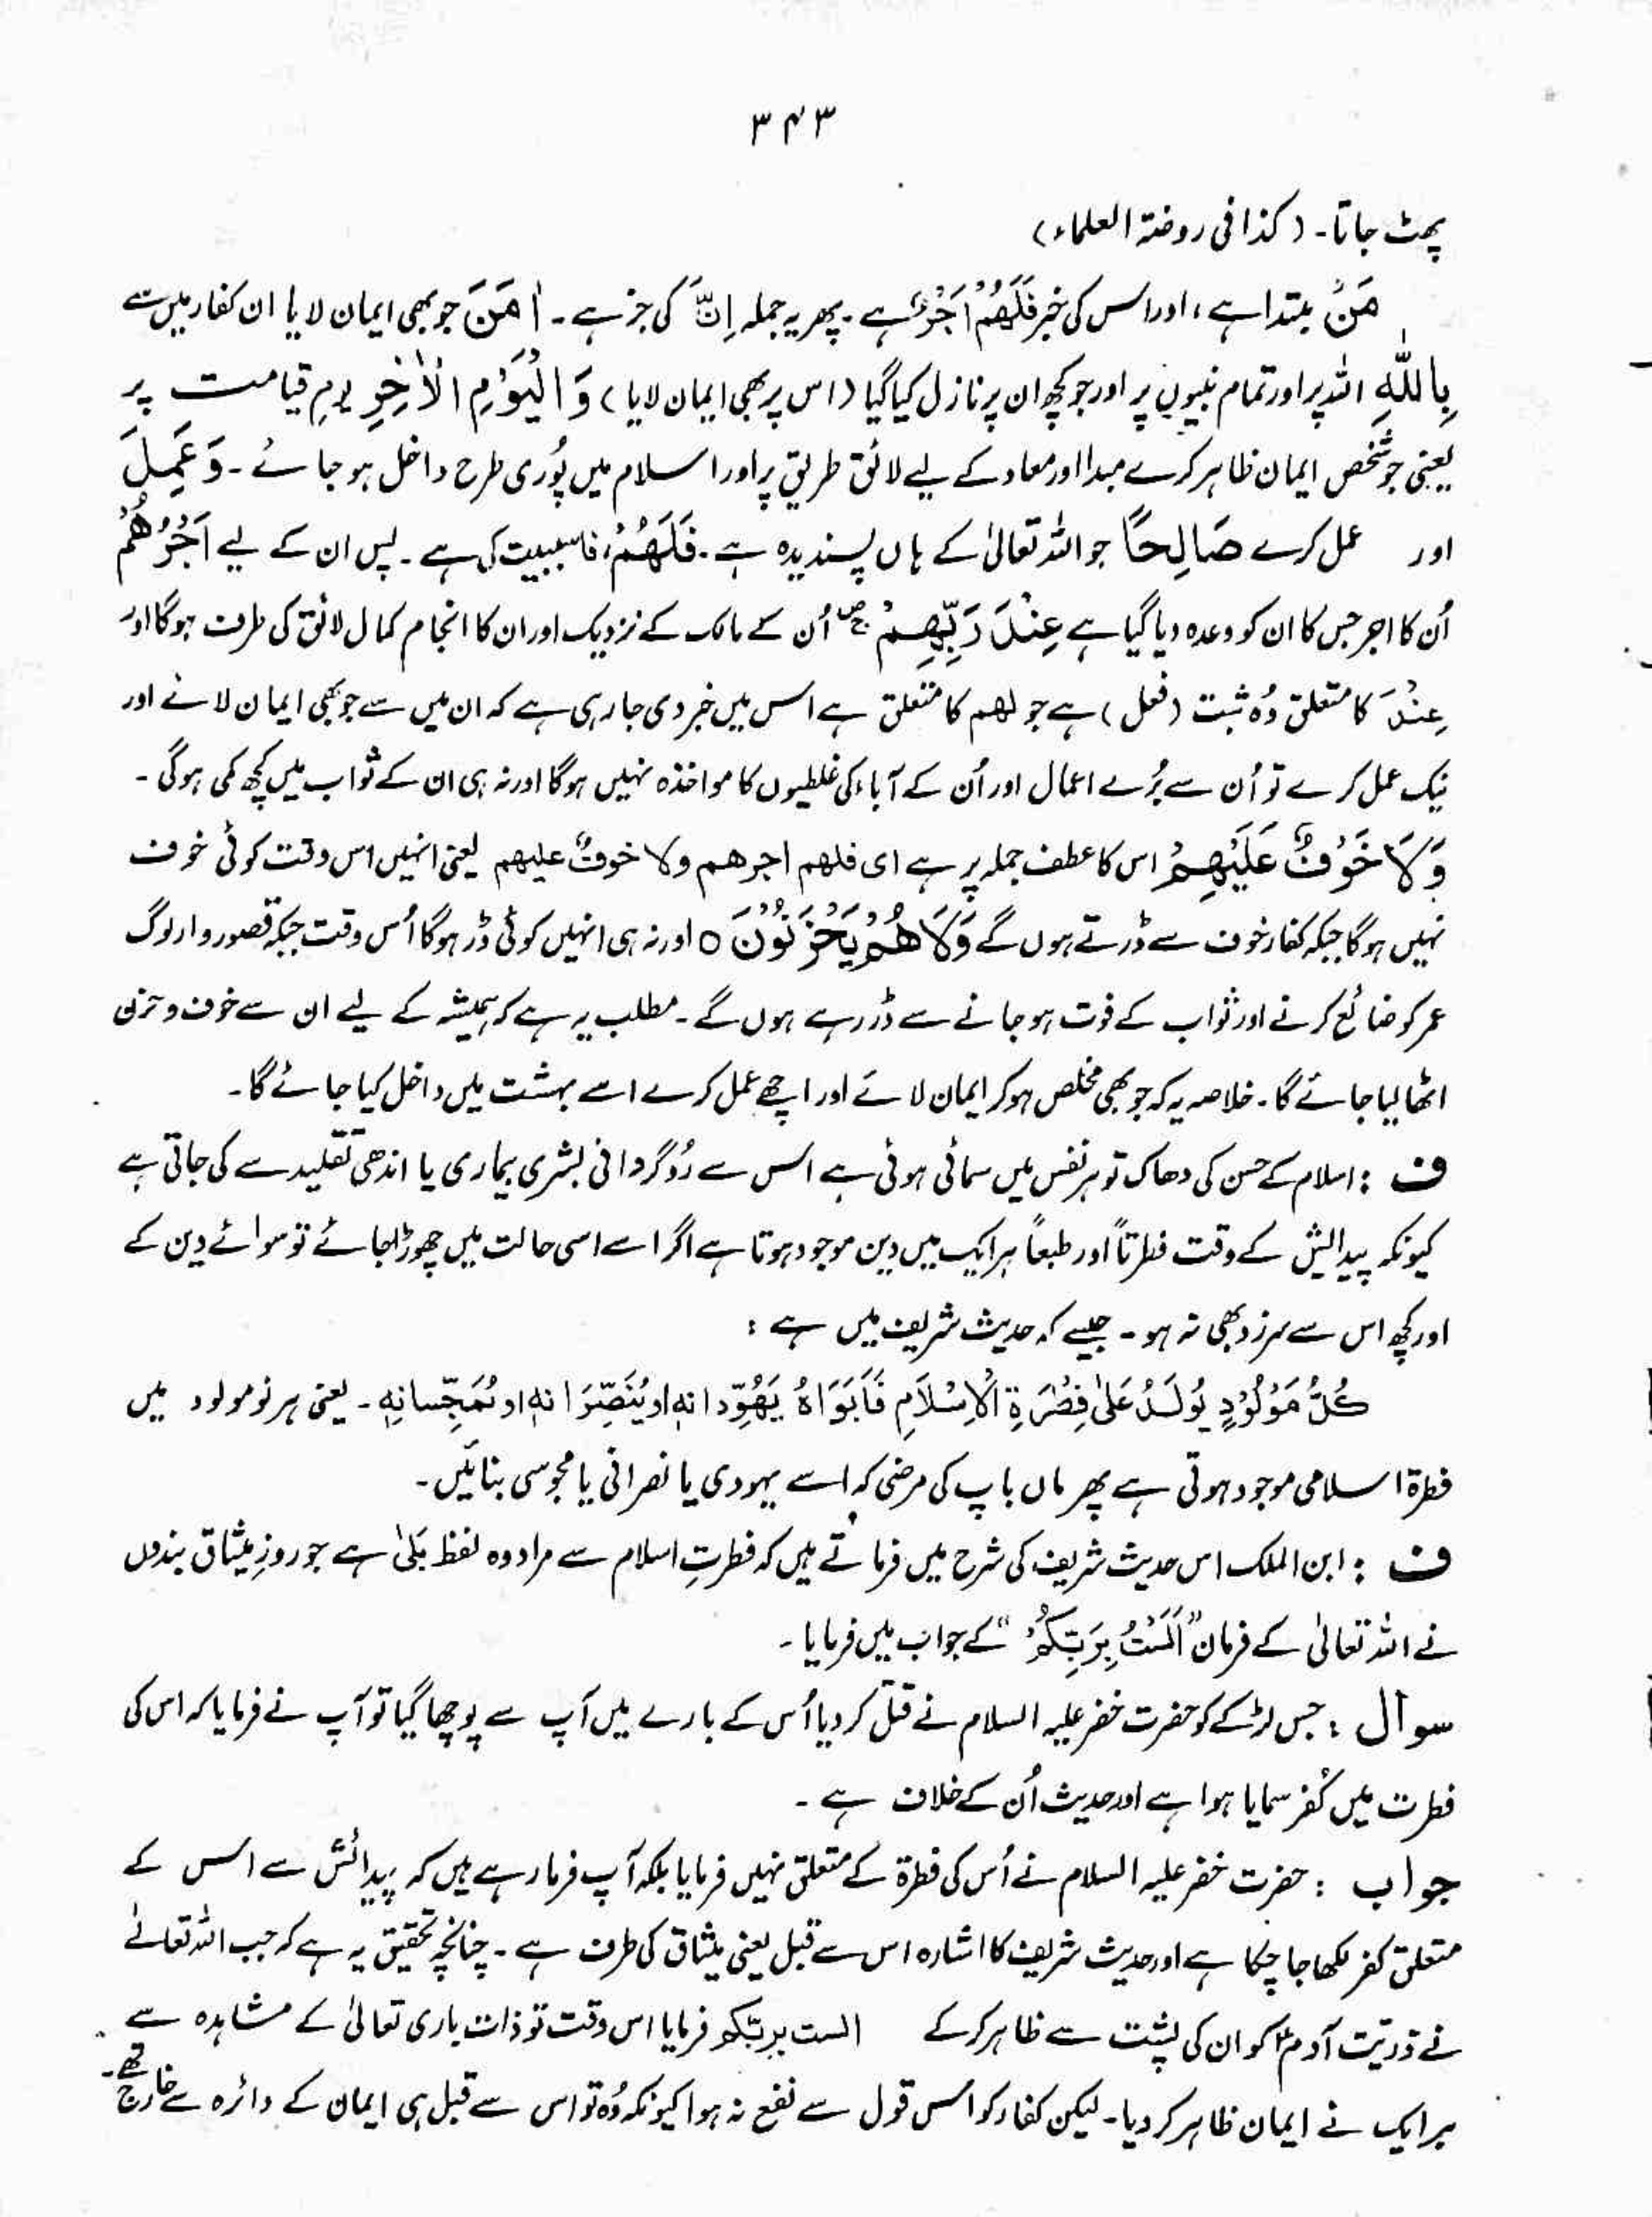 ۳۴۳
پھٹ جاتا۔ (کذا فی روضۃ العلماء)
مَنْ مبتدا ہے، اور اس کی خبر فَلَهُمْ اَجْرُهُمْ ہے۔ پھر یہ جملہ اِنَّ کی خبر ہے۔ اٰمَنَ جو بھی ایمان لایا ان کفار میں سے
بِاللّٰهِ اللہ پر اور تمام نبیوں پر اور جو کچھ ان پر نازل کیا گیا (اس پر بھی ایمان لایا) وَالْيَوْمِ الْاٰخِرِ یومِ قیامت پر
یعنی جو شخص ایمان ظاہر کرے مبدا اور معاد کے لیے لائق طریق پر اور اسلام میں پُوری طرح داخل ہو جائے۔ وَعَمِلَ
اور عمل کرے صَالِحًا جو اللہ تعالیٰ کے ہاں پسندیدہ ہے۔ فَلَهُمْ، فا سببیت کی ہے۔ پس ان کے لیے اَجْرُهُمْ
اُن کا اجر جس کا ان کو وعدہ دیا گیا ہے عِنْدَ رَبِّهِمْ ج ص اُن کے مالک کے نزدیک اور ان کا انجام کمال لائق کی طرف ہوگا اور
عِنْدَ کا متعلق وُہ ثبت (فعل) ہے جو لھم کا متعلق ہے اس میں خبر دی جا رہی ہے کہ ان میں سے جو بھی ایمان لائے اور
نیک عمل کرے تو اُن سے بُرے اعمال اور اُن کے آباء کی غلطیوں کا مواخذہ نہیں ہوگا اور نہ ہی ان کے ثواب میں کچھ کمی ہوگی۔
وَلَا خَوْفٌ عَلَيْهِمْ اس کا عطف جملہ پر ہے ای فلھم اجرھم ولا خوفٌ علیھم یعنی انہیں اس وقت کوئی خوف
نہیں ہوگا جبکہ کفار خوف سے ڈرتے ہوں گے وَلَا هُمْ يَحْزَنُوْنَ ○ اور نہ ہی انہیں کوئی ڈر ہوگا اُس وقت جبکہ قصوروار لوگ
عمر کو ضائع کرنے اور ثواب کے فوت ہو جانے سے ڈر رہے ہوں گے۔ مطلب یہ ہے کہ ہمیشہ کے لیے ان سے خوف و حزن
اٹھا لیا جائے گا۔ خلاصہ یہ کہ جو بھی مخلص ہو کر ایمان لائے اور اچھے عمل کرے اسے بہشت میں داخل کیا جائے گا۔
ف : اسلام کے حسن کی دھاک تو ہر نفس میں سمائی ہوئی ہے اس سے رُوگردانی بشری بیماری یا اندھی تقلید سے کی جاتی ہے
کیونکہ پیدائش کے وقت فطرتاً اور طبعاً ہر ایک میں دین موجود ہوتا ہے اگر اسے اسی حالت میں چھوڑا جائے تو سوائے دین کے
اور کچھ اس سے سرزد بھی نہ ہو۔ جیسے کہ حدیث شریف میں ہے :
كُلُّ مَوْلُوْدٍ يُوْلَدُ عَلٰى فِطْرَةِ الْاِسْلَامِ فَاَبَوَاهُ يَهُوِّدَانِهٖ اَوْ يُنَصِّرَانِهٖ اَوْ يُمَجِّسَانِهٖ۔ یعنی ہر نومولود میں
فطرۃ اسلامی موجود ہوتی ہے پھر ماں باپ کی مرضی کہ اسے یہودی یا نصرانی یا مجوسی بنائیں۔
ف : ابن الملک اس حدیث شریف کی شرح میں فرماتے ہیں کہ فطرتِ اسلام سے مراد وہ لفظ بَلٰی ہے جو روزِ میثاق بندوں
نے اللہ تعالیٰ کے فرمان "اَلَسْتُ بِرَبِّكُمْ" کے جواب میں فرمایا۔
سوال : جس لڑکے کو حضرت خضر علیہ السلام نے قتل کر دیا اُس کے بارے میں آپ سے پوچھا گیا تو آپ نے فرمایا کہ اس کی
فطرت میں کُفر سمایا ہوا ہے اور حدیث اُن کے خلاف ہے۔
جواب : حضرت خضر علیہ السلام نے اُس کی فطرۃ کے متعلق نہیں فرمایا بلکہ آپ فرما رہے ہیں کہ پیدائش سے اس کے
متعلق کفر لکھا جا چکا ہے اور حدیث شریف کا اشارہ اس سے قبل یعنی میثاق کی طرف ہے۔ چنانچہ تحقیق یہ ہے کہ جب اللہ تعالےٰ
نے ذریّت آدمؑ کو ان کی پشت سے ظاہر کرکے الست بربّکم فرمایا اس وقت تو ذات باری تعالیٰ کے مشاہدہ سے
ہر ایک نے ایمان ظاہر کر دیا۔ لیکن کفار کو اس قول سے نفع نہ ہوا کیونکہ وُہ تو اس سے قبل ہی ایمان کے دائرہ سے خارج تھے۔